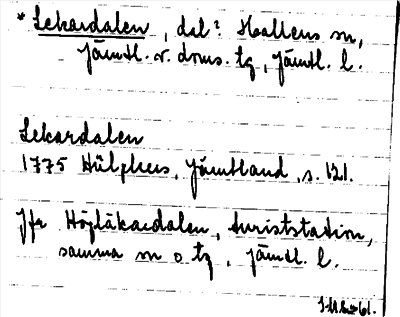 *Lekardalen, dal? Hallens sn,
Jämtl. v. doms. tg, Jämtl. l.
Lekardalen
1775 Hülphers, Jämtland, s. 121.
Jfr Höglekardalen, turiststation,
samma sn o tg, Jämtl. l.